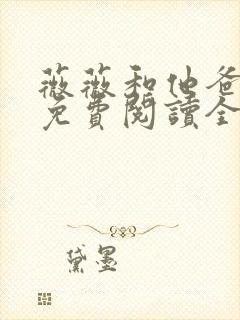 薇薇和他爸
免費閱讀全
黛墨